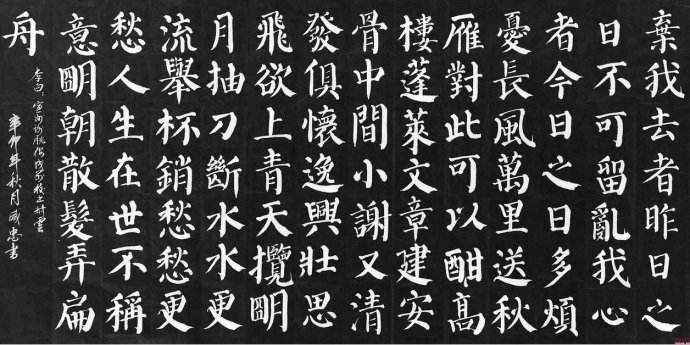 棄我去者昨日之
日不可留亂我心
者今日之日多煩
憂長風萬里送秋
雁對此可以酣高
樓蓬萊文章建安
骨中間小謝又清
發俱懷逸興壯思
飛欲上青天攬朙
月抽刀斷水水更
流舉杯銷愁愁更
愁人生在世不稱
意朙朝散髮弄扁
舟
李白
辛卯年秋月忠書